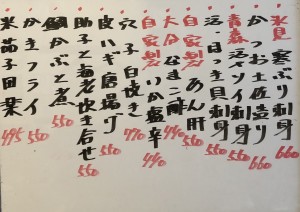 氷見 寒ぶり刺身 660
かつお土佐造り 660
青森 活〆ソイ刺身 550
活・ほっき貝刺身 550
自家製 あん肝 550
大分 なまこ酢 440
自家製 いか塩辛 440
穴子白焼き 770
皮ハギ唐揚げ 550
助子と海老炊き合せ 550
鯛かぶと煮 550
かきフライ 550
米茄子田楽 495